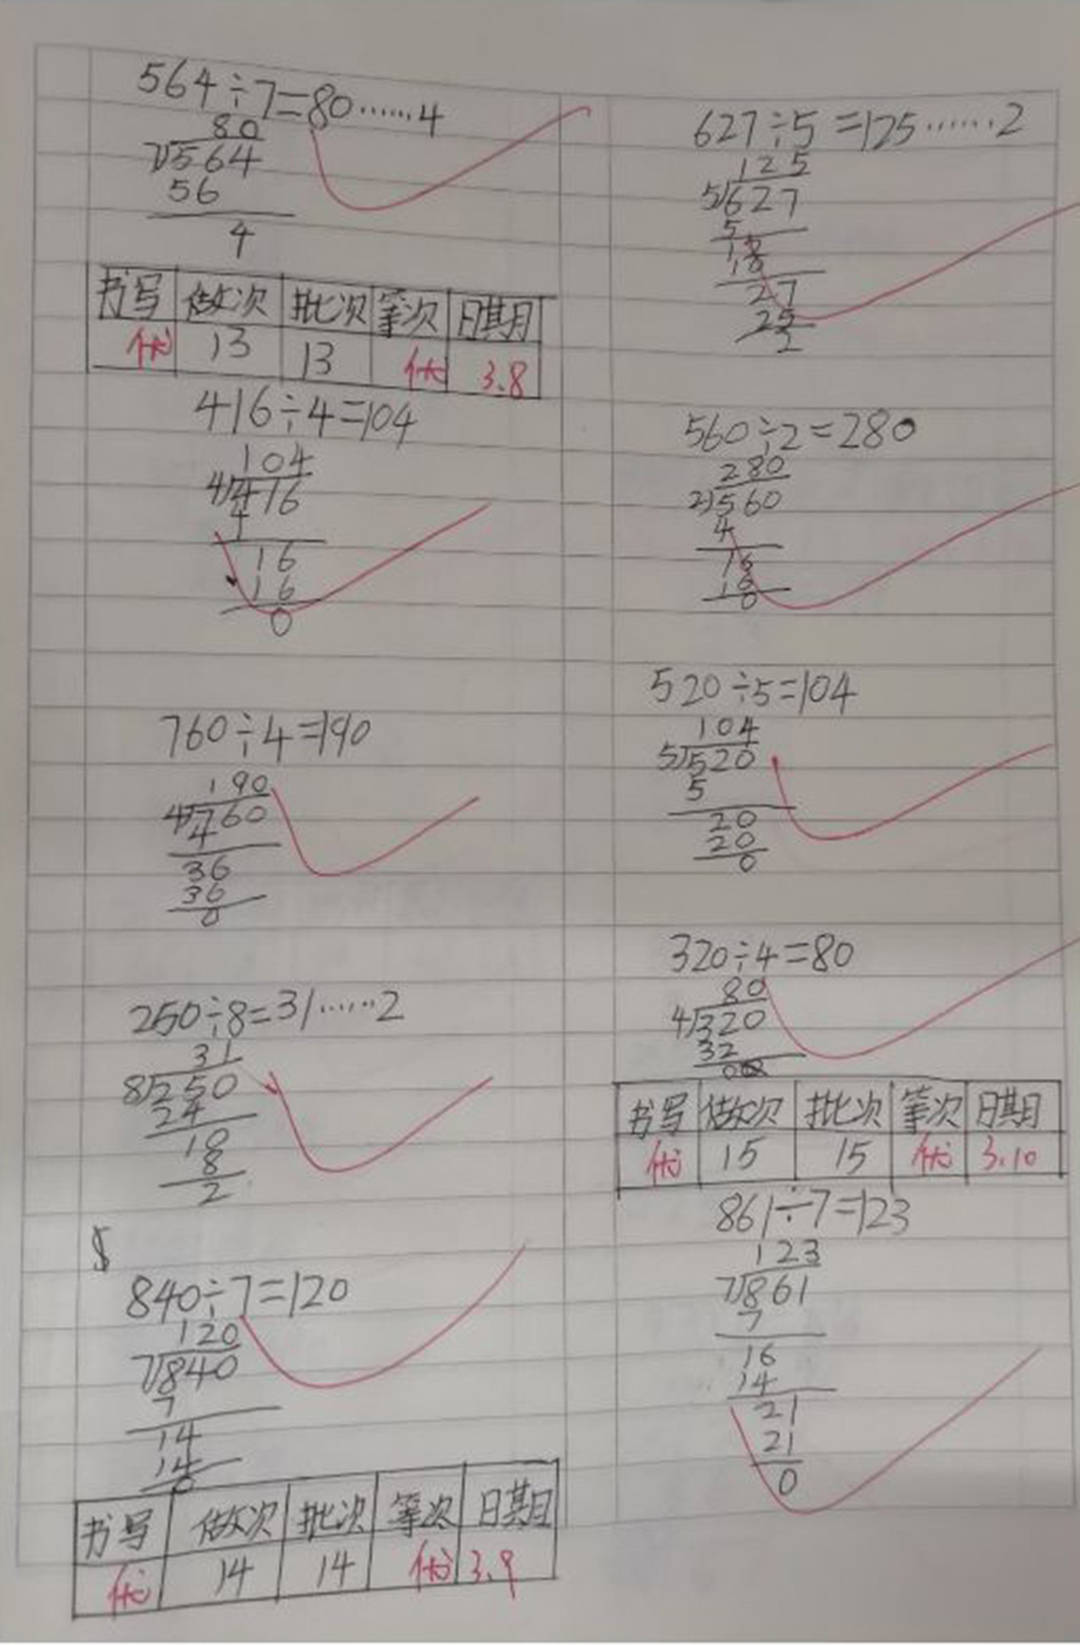 564÷7=80……4
80
7)564
56
4
书写 做次 批次 等次 日期
优 13 13 优 3.8
416÷4=104
104
4)416
4
16
16
0
760÷4=190
190
4)760
4
36
36
0
250÷8=31……2
31
8)250
24
18
8
2
840÷7=120
120
7)840
7
14
14
0
书写 做次 批次 等次 日期
优 14 14 优 3.9
627÷5=125……2
125
5)627
5
12
10
27
25
2
560÷2=280
280
2)560
4
16
16
0
520÷5=104
104
5)520
5
20
20
0
320÷4=80
80
4)320
32
0
书写 做次 批次 等次 日期
优 15 15 优 3.10
861÷7=123
123
7)861
7
16
14
21
21
0